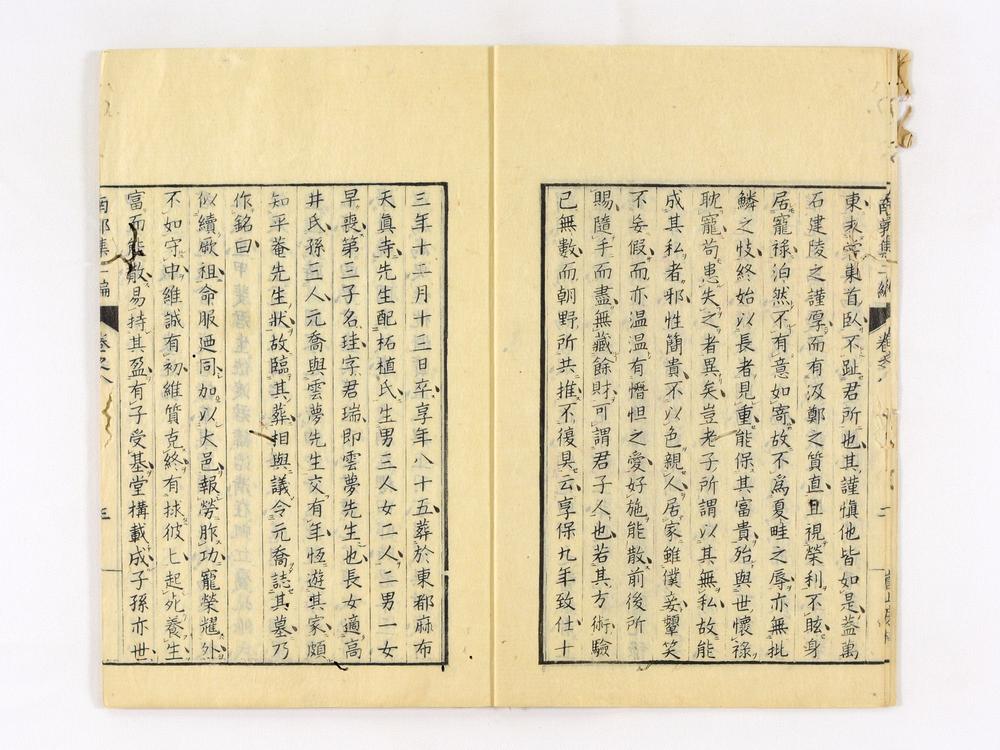 東表嘗東首臥不趾君所也其謹愼他皆如是蓋萬
石建陵之謹厚而有汲鄭之質直且視榮利不眩身
居寵祿泊然不有意如寄故不爲夏畦之辱亦無批
鱗之忮終始以長者見重能保其富貴殆與世懷祿
耽寵苟患失之者異矣豈老子所謂以其無私故能
成其私者邪性簡貴不以色親人居家雖僕妾顰笑
不妄假而亦温温有憯怛之愛好施能散前後所
賜隨手而盡無藏餘財可謂君子人也若其方術驗
已無數而朝野所共推不復具云享保九年致仕十
三年十二月十三日卒享年八十五葬於東都麻布
天眞寺先生配柘植氏生男三人女二人二男一女
早喪第三子名珪字君瑞即雲夢先生也長女適高
井氏孫三人元喬與雲夢先生交有年恆遊其家頗
知平菴先生狀故臨其葬相與議令元喬誌其墓乃
作銘曰
似續厥祖命服廼同加以大邑報勞胙功寵榮耀外
不如守中維誠有初維質克終有捄彼匕起死養生
富而能散易持其盈有子受基堂構載成子孫亦世
南郭集二編 卷之八 三